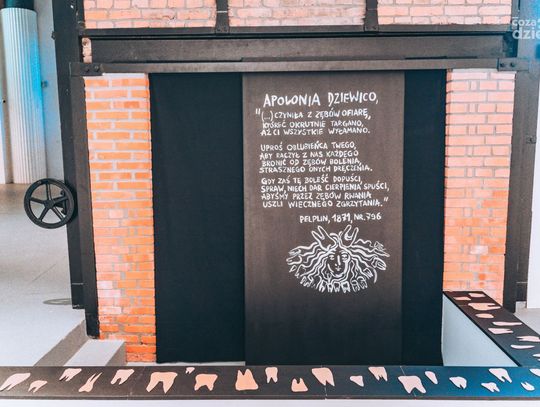 coza
dzie
APOLONIA DZIEWICO,
"(...) CZYNIŁA Z ZĘBÓW OFIARĘ,
KTÓREĆ OKRUTNIE TARGANO,
AŻ CI WSZYSTKIE WYŁAMANO.
UPROŚ OBLUBIEŃCA TWEGO,
ABY RACZYŁ Z NAS KAŻDEGO
BRONIĆ OD ZĘBÓW BOLENIA,
STRASZNEGO ONYCH DRĘCZENIA.
GDY ZAŚ TĘ BOLEŚĆ DOPUŚCI,
SPRAW, NIECH DAR CIERPIENIA SPUŚCI,
ABYŚMY PRZEZ ZĘBÓW RWANIA
USZLI WIECZNEGO ZGRZYTANIA."
PELPLIN, 1871, NR. 796